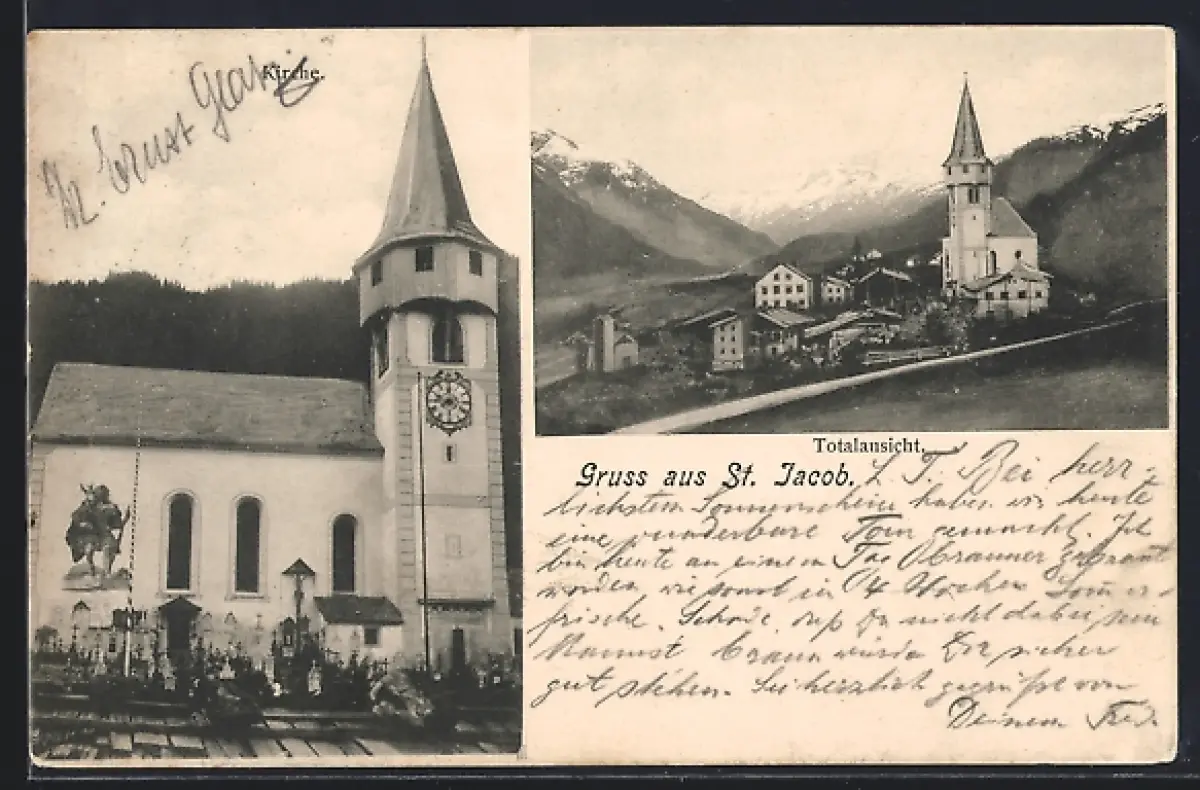 Kirche.
Dr. Ernst
Totalansicht.
Gruss aus St. Jacob.
L. F. Bei herr-
lichstem Sonnenschein haben wir heute
eine wunderbare Tour gemacht. Ich
bin heute an einem Tag brauner gebrannt
worden, wie sonst in 4 Wochen Som̅er-
frische. Schade, daß Du nicht dabei sein
kannst braun würde Dir sicher
gut stehen. Sei herzlich gegrüßt von
Deinem